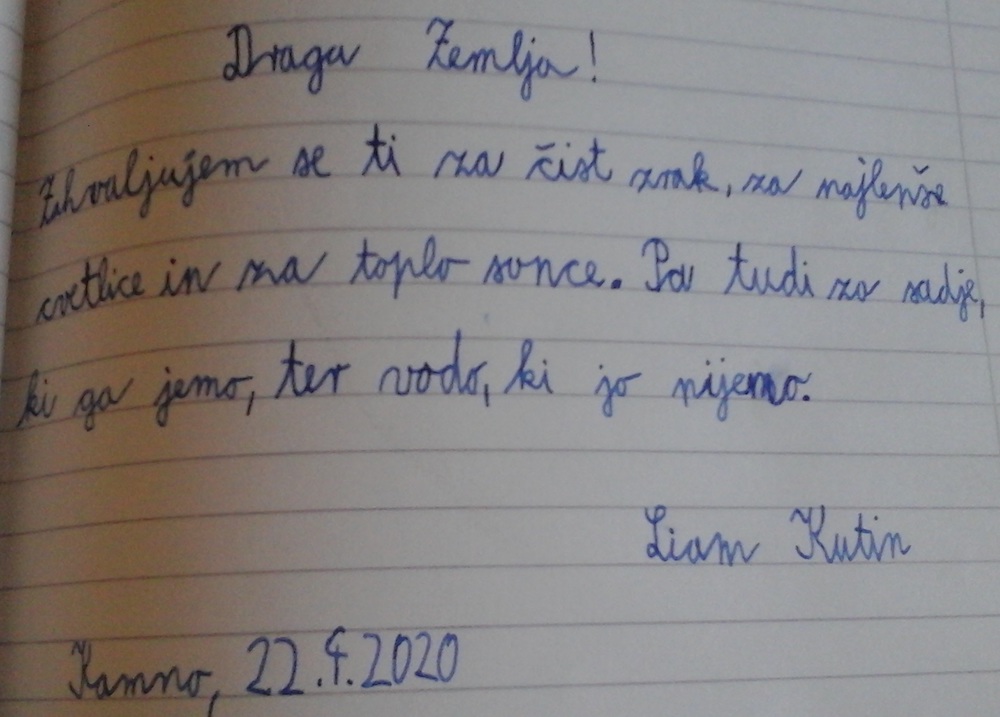 Draga Zemlja!
Zahvaljujem se ti za čist zrak, za najlepše
cvetlice in za toplo sonce. Pa tudi za sadje,
ki ga jemo, ter vodo, ki jo pijemo.
Liam Kutin
Kamno, 22.4.2020